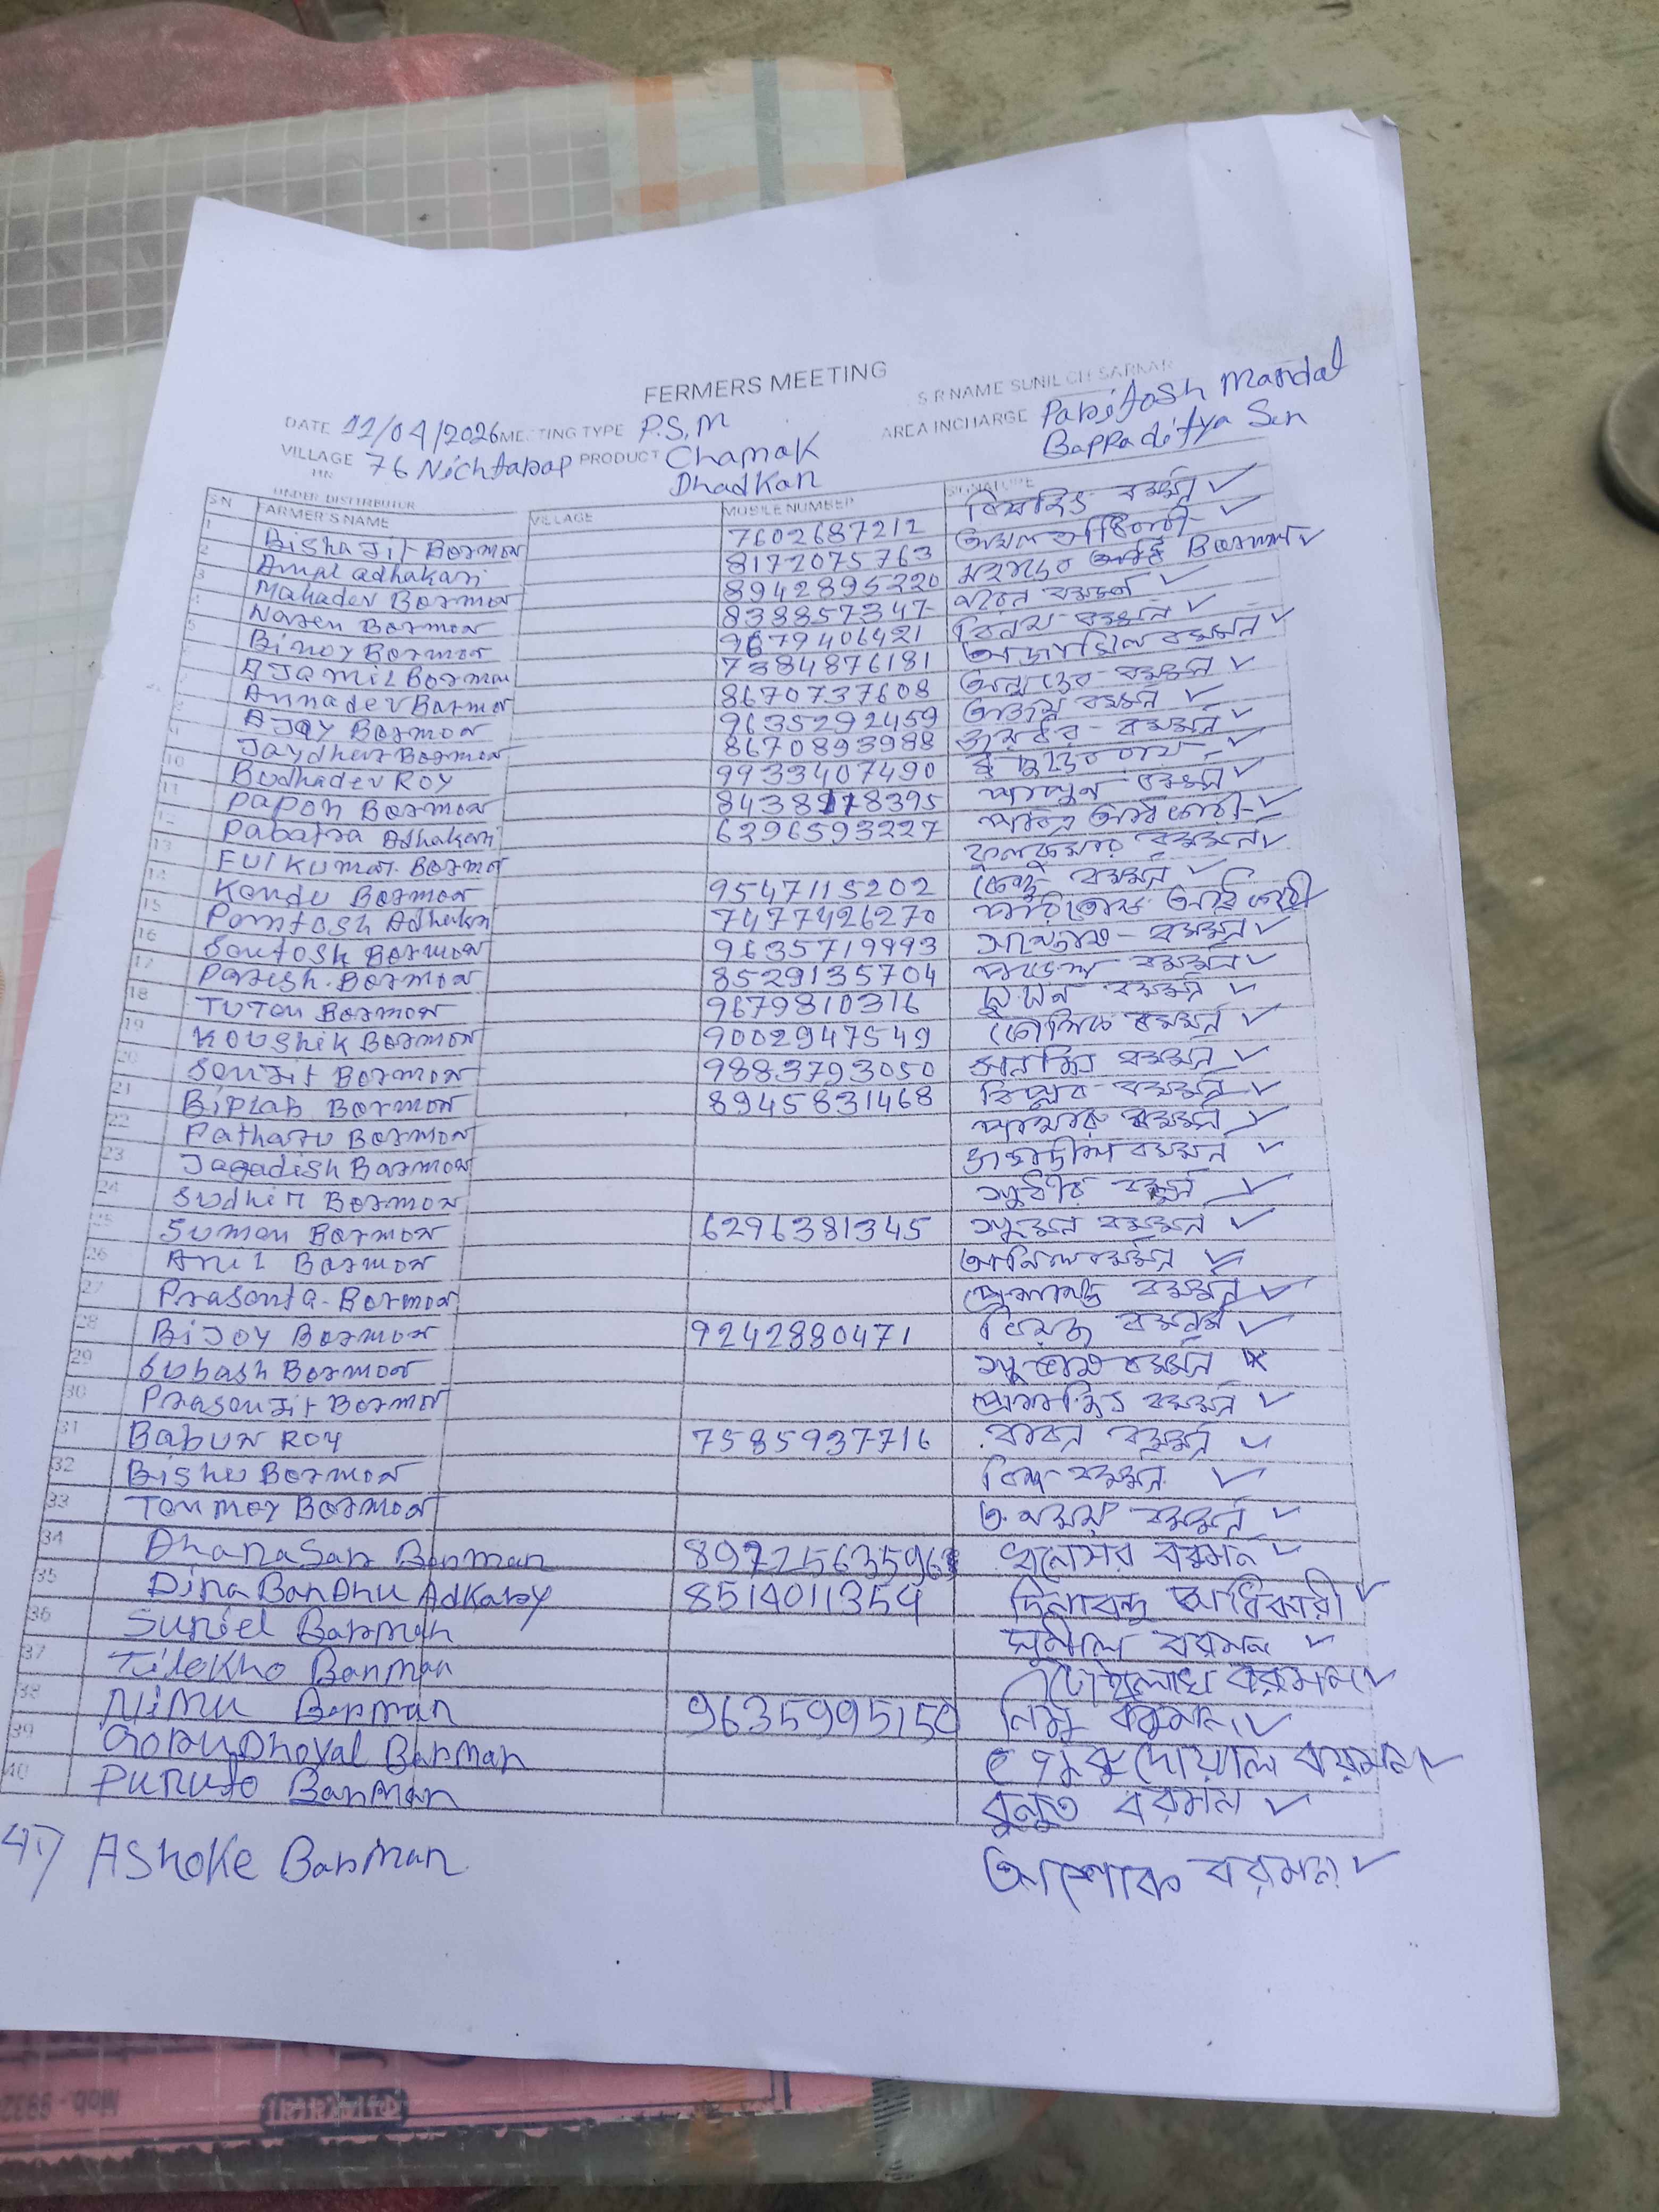 FERMERS MEETING
S.R NAME SUNIL CH SARKAR
DATE 12/04/2026 MEETING TYPE P.S.M AREA INCHARGE Paritosh Mandal
Bappaditya Sen
VILLAGE 76 Nichtarap PRODUCT Chamak
Dhadkan
UNDER DISTRIBUTOR
SN FARMER'S NAME VILLAGE MOBILE NUMBER SIGNATURE
1 Bishajit Bormon 7602687212 বিষজিৎ বর্মন ✓
2 Amal adhakari 8172075763 অমল অধিকারী ✓
3 Mahadev Bormon 8942895220 মহাদেব Bormon ✓
4 Naren Bormon 838857347 নরেন বর্মন ✓
5 Binoy Bormon 9679406421 বিনয় বর্মন ✓
AJamil Bormon 7384876181 অজামিল বর্মন ✓
7 Annadev Bormon 8670737608 অন্নদেব বর্মন ✓
8 AJay Bormon 9635292459 অজয় বর্মন ✓
9 Jaydhar Bormon 8670893988 জয়ধর বর্মন ✓
10 Budhadev ROY 9933407490 বুদ্ধদেব রায় ✓
11 Papon Bormon 8438178395 পাপন বর্মন ✓
12 Pabatra Adhakari 6296593227 পবিত্র অধিকারী ✓
13 Fulkumar Bormon ফুলকুমার বর্মন ✓
14 Kandu Bormon 9547115202 কেন্দু বর্মন ✓
15 Paritosh Adhakari 7477426270 পরিতোষ অধিকারী ✓
16 Santosh Bormon 9635719993 সন্তোষ বর্মন ✓
17 Paresh Bormon 8529135704 পরেশ বর্মন ✓
18 TUTON Bormon 9679810316 টুটন বর্মন ✓
19 Koushik Bormon 9002947549 কৌশিক বর্মন ✓
20 Sonjit Bormon 9883793050 সনজিৎ বর্মন ✓
21 Biplab Bormon 8945831468 বিপ্লব বর্মন ✓
22 Patharu Bormon পাথারু বর্মন ✓
23 Jagadish Barmon জগদীশ বর্মন ✓
24 Sudhir Bormon সুধীর বর্মন ✓
25 Sumon Bormon 6296381345 সুমন বর্মন ✓
26 Anil Bormon অনিল বর্মন ✓
27 Prasonta Bormon প্রশান্ত বর্মন ✓
28 Bijoy Bormon 9242880471 বিজয় বর্মন ✓
29 Subash Bormon সুভাষ বর্মন
30 Prasonjit Bormon প্রসনজিৎ বর্মন ✓
31 Babun ROY 7585937716 বাবন বর্মন ✓
32 Bishu Bormon বিশু বর্মন ✓
33 Tonmoy Bormon তনময় বর্মন ✓
34 Dhanasar Barman ধনেসর বরমন ✓
35 Dina Bandhu Adkary 8514011354 দিনাবন্ধু অধিকারী ✓
36 Suniel Barman সুনীল বরমন ✓
37 Tilokho Barman বরমন ✓
38 Nimu Barman 9635995150 নিমু বরমন ✓
39 Gorudhoyal Barman গুরুদোয়াল বরমন ✓
40 Punuto Barman বরমন ✓
41) AShoke Barman অশোক বরমন ✓